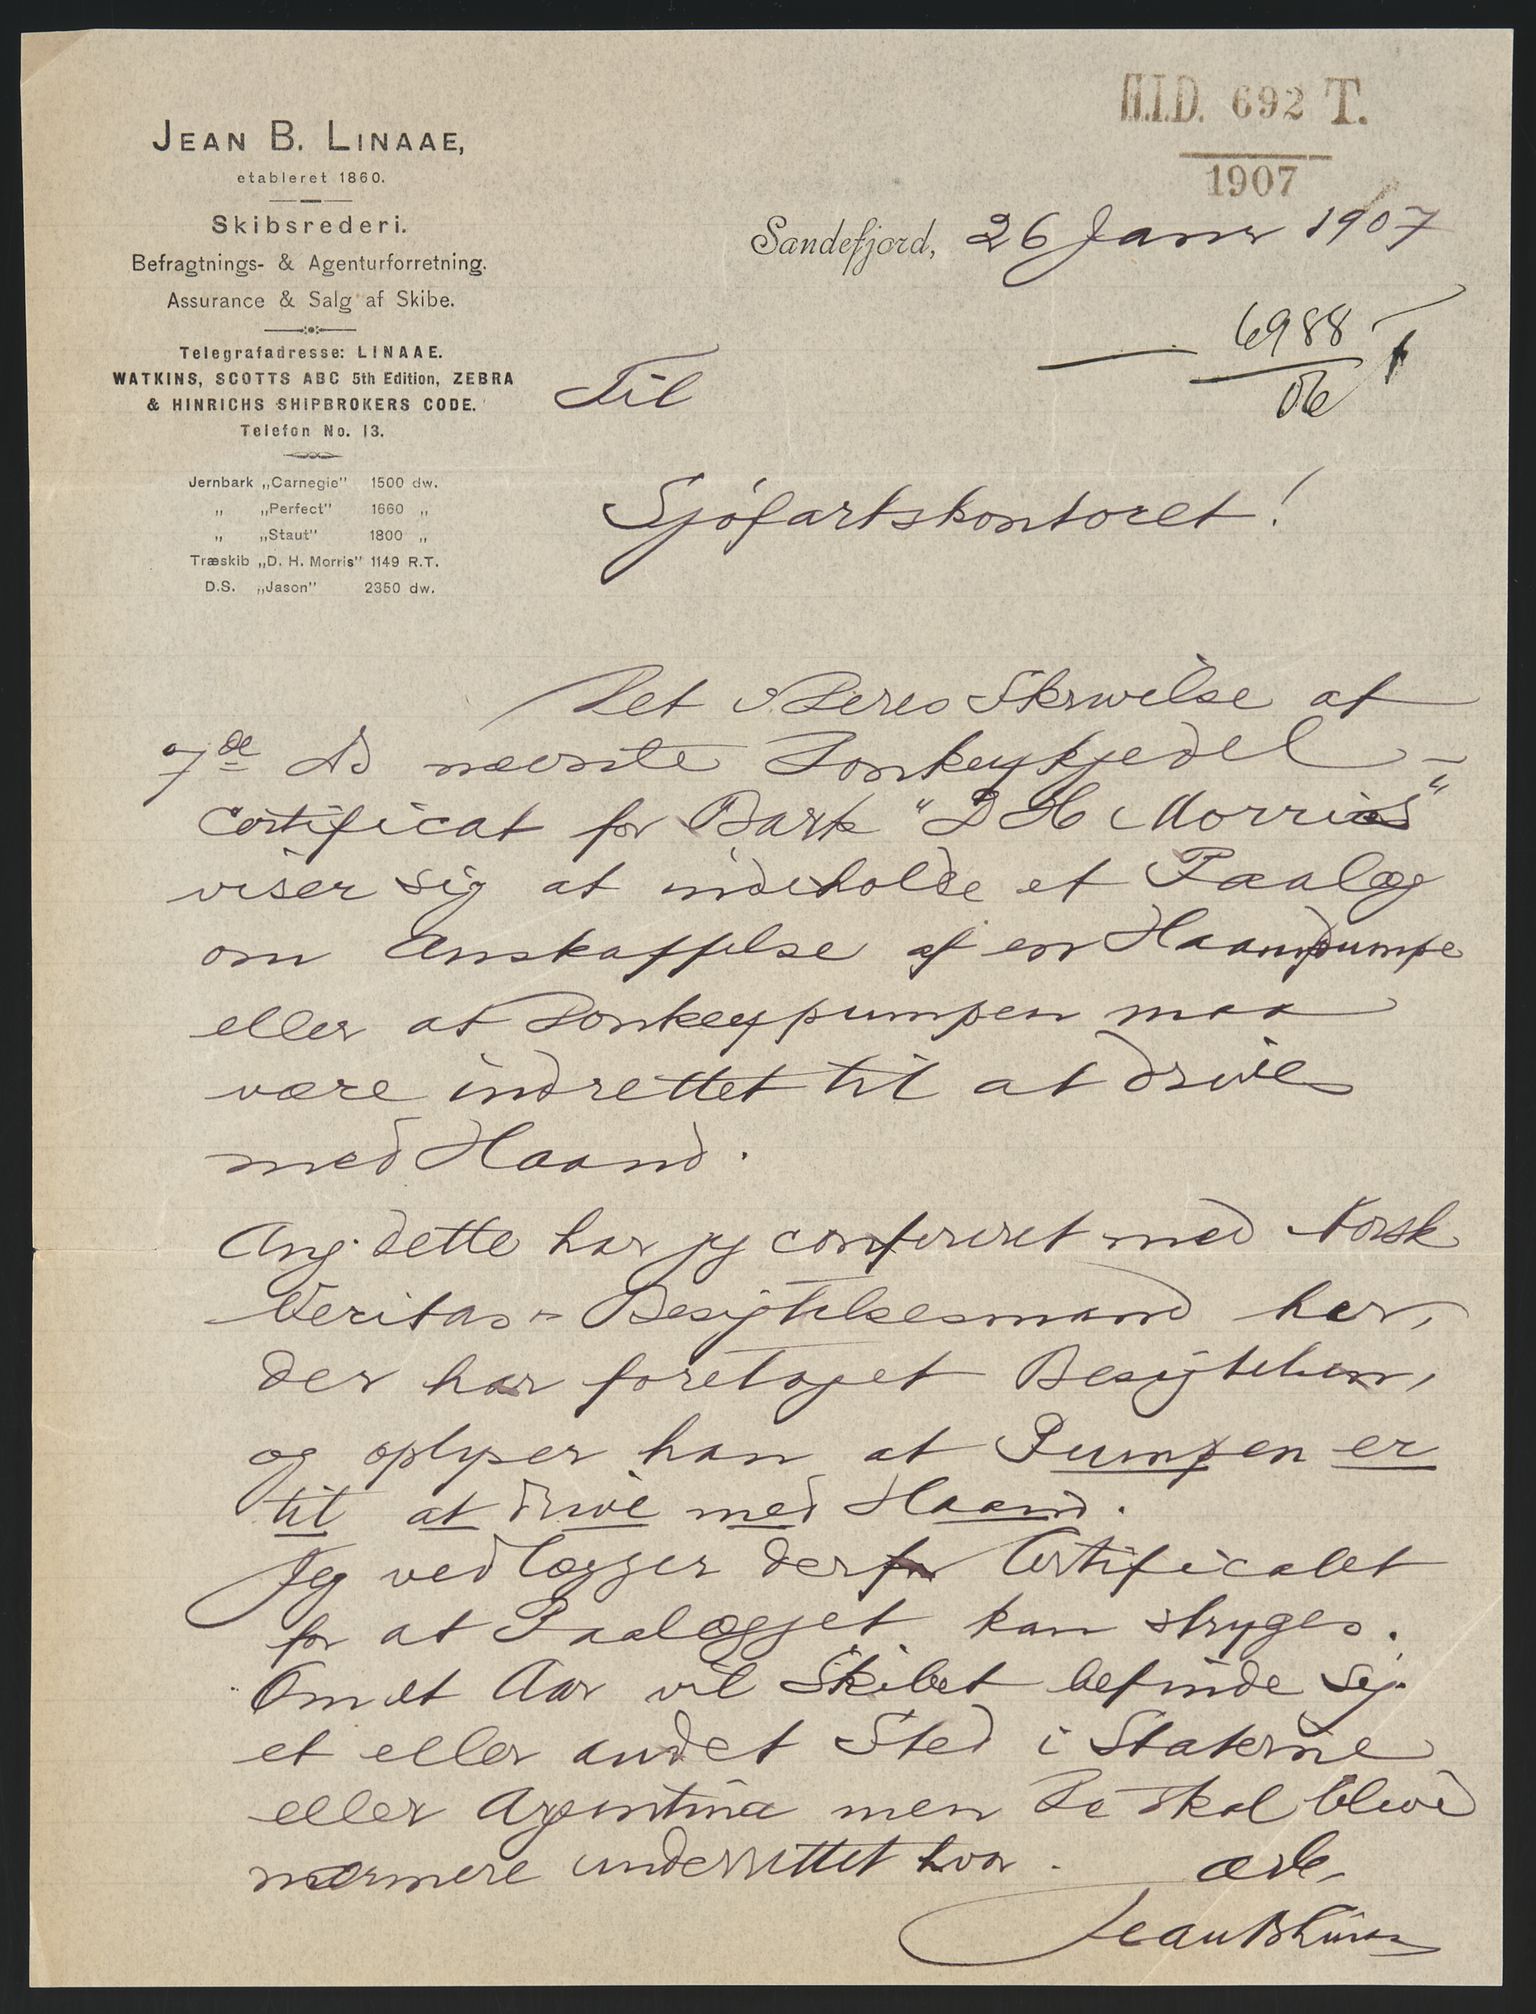 H.I.D. 692 T.
1907
JEAN B. LINAAE,
etableret 1860.
Skibsrederi.
Befragtnings- & Agenturforretning.
Assurance & Salg af Skibe.
Telegrafadresse: LINAAE.
WATKINS, SCOTTS ABC 5th Edition, ZEBRA
& HINRICHS SHIPBROKERS CODE.
Telefon No. 13.
Jernbark „Carnegie" 1500 dw.
„ „Perfect" 1660 „
„ „Staut" 1800 „
Træskib „D. H. Morris" 1149 R.T.
D.S. „Jason" 2350 dw.
Sandefjord, 26 Januar 1907
6988
06
Til
Sjøfartskontoret!
Det i Deres Skrivelse af
7de ds nævnte Donkeykjedel-
certificat for Bark "D H Morris"
viser sig at indeholde et Paalæg
om Anskaffelse af en Haandpumpe
eller at Donkeypumpen maa
være indrettet til at drives
med Haand.
Ang. dette har jeg confereret med Norsk
Veritas- Besigtelsesmand her,
der har foretaget Besigtelsen,
og oplyser han at Pumpen er
til at drive med Haand.
Jeg vedlægger derfor Certificatet
for at Paalægget kan stryges.
Om et Aar vil Skibet befinde sig
et eller andet Sted i Staterne
eller Argentina men De skal blive
nærmere underrettet hvor.
ærb.
Jean B Linaae